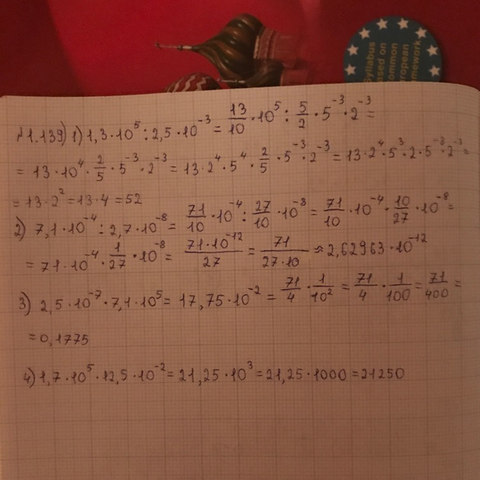 Syllabus
based on
Common
European
Framework
№1.139) 1) 1,3·10⁵ : 2,5·10⁻³ = 13/10 · 10⁵ : 5/2 · 5⁻³ · 2⁻³ =
= 13·10⁴ · 2/5 · 5⁻³ · 2⁻³ = 13·2⁴·5⁴ · 2/5 · 5⁻³ · 2⁻³ = 13·2⁴·5³·2·5⁻³·2⁻³ =
= 13·2² = 13·4 = 52
2) 7,1·10⁻⁴ : 2,7·10⁻⁸ = 71/10 · 10⁻⁴ : 27/10 · 10⁻⁸ = 71/10 · 10⁻⁴ · 10/27 · 10⁻⁸ =
= 71·10⁻⁴ · 1/27 · 10⁻⁸ = 71·10⁻¹²/27 = 71/27·10 ≈ 2,62963·10⁻¹²
3) 2,5·10⁻⁷·7,1·10⁵ = 17,75·10⁻² = 71/4 · 1/10² = 71/4 · 1/100 = 71/400 =
= 0,1775
4) 1,7·10⁵·12,5·10⁻² = 21,25·10³ = 21,25·1000 = 21250